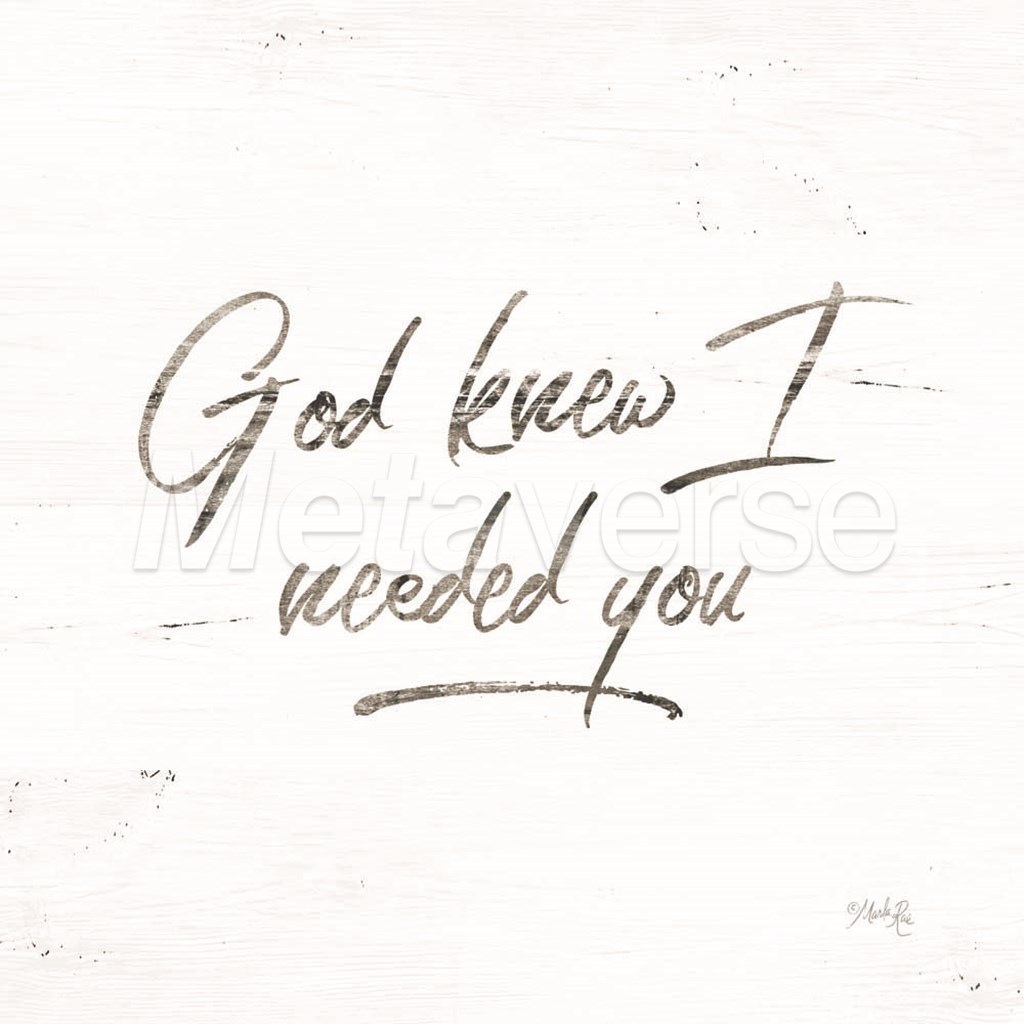 God knew I
Metaverse
needed you
©Marla Rae